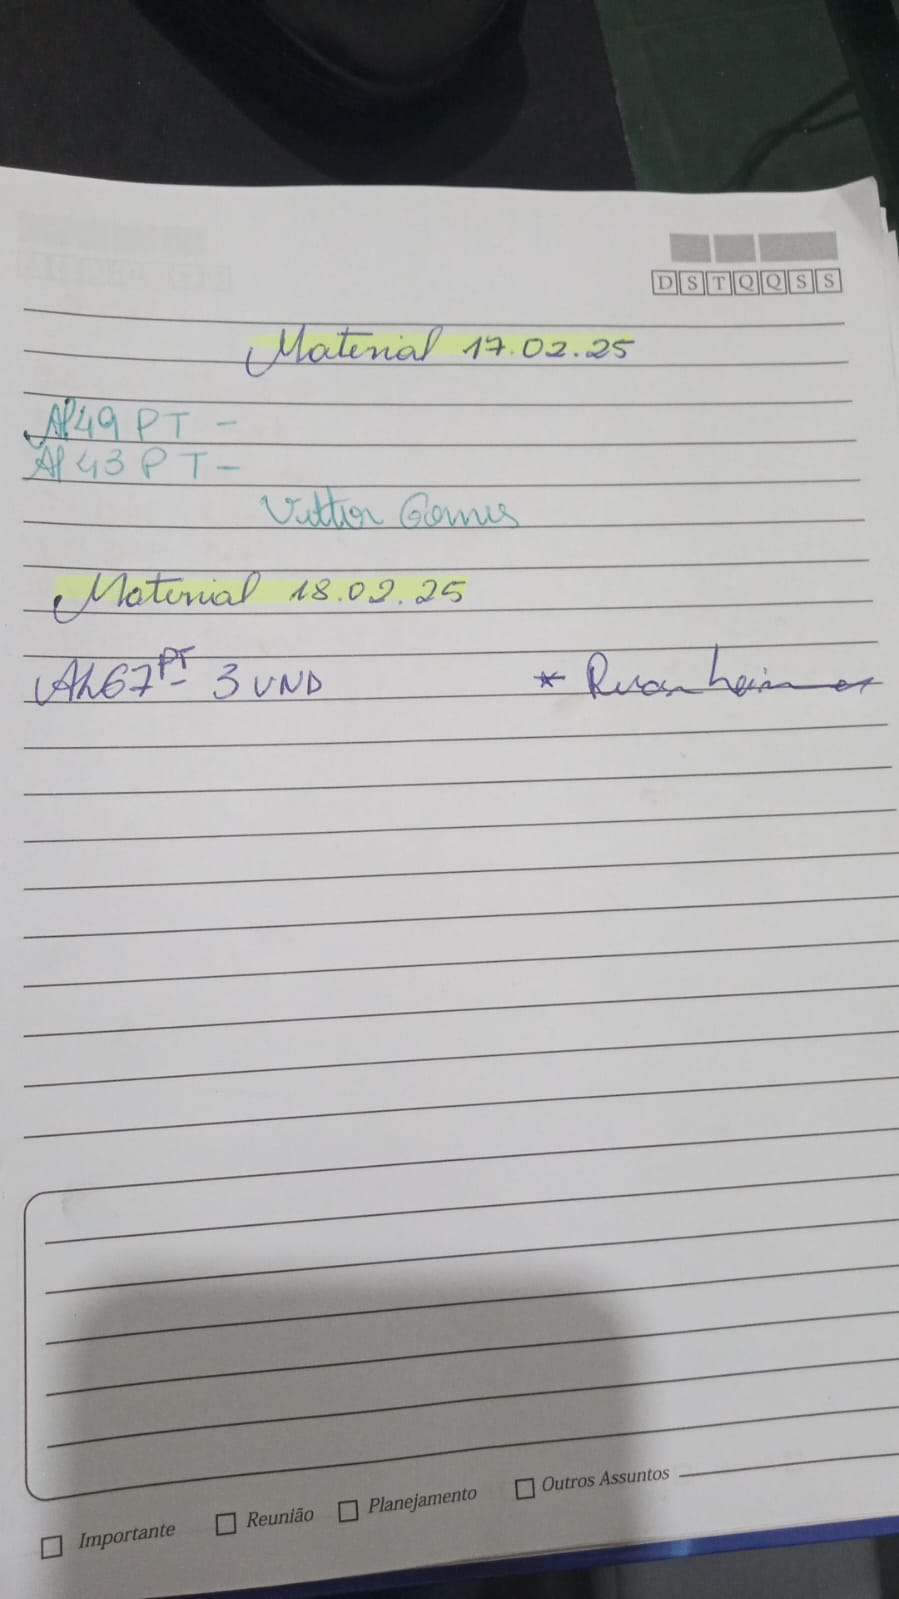 D S T Q Q S S
Material 17.02.25
AP49 PT -
AP43 PT -
Vittor Gomes
Material 18.02.25
AL67 PT - 3 UND *
Importante Reunião Planejamento Outros Assuntos